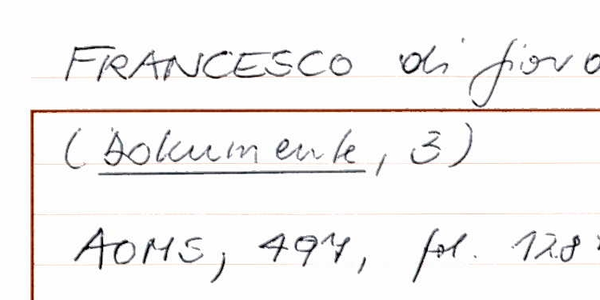 FRANCESCO di Giova
(Dokumente, 3)
AOMS, 497, fol. 128